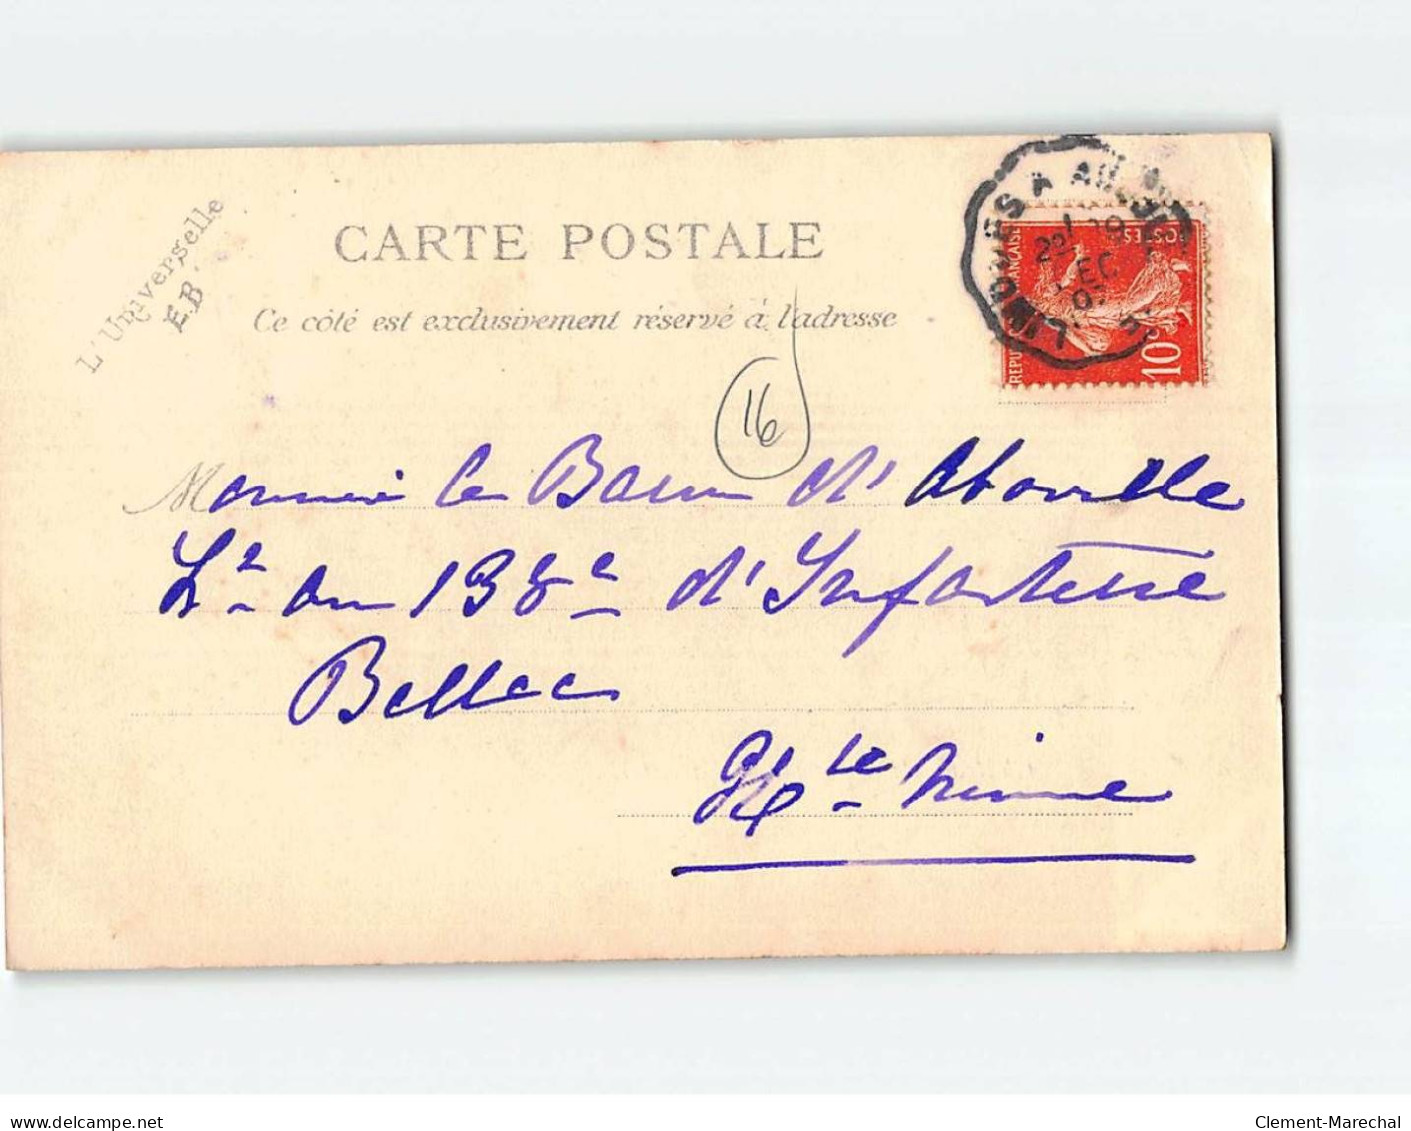 L'Universelle
E.B.
CARTE POSTALE
Ce côté est exclusivement réservé à l'adresse
16
LIMOGES A
22
REPUB FRANÇAISE
POSTES
10
Monsieur le Baron d'Aboville
Lt au 138e d'Infanterie
Bellac
Hte Vienne
delcampe.net
Clement-Marechal